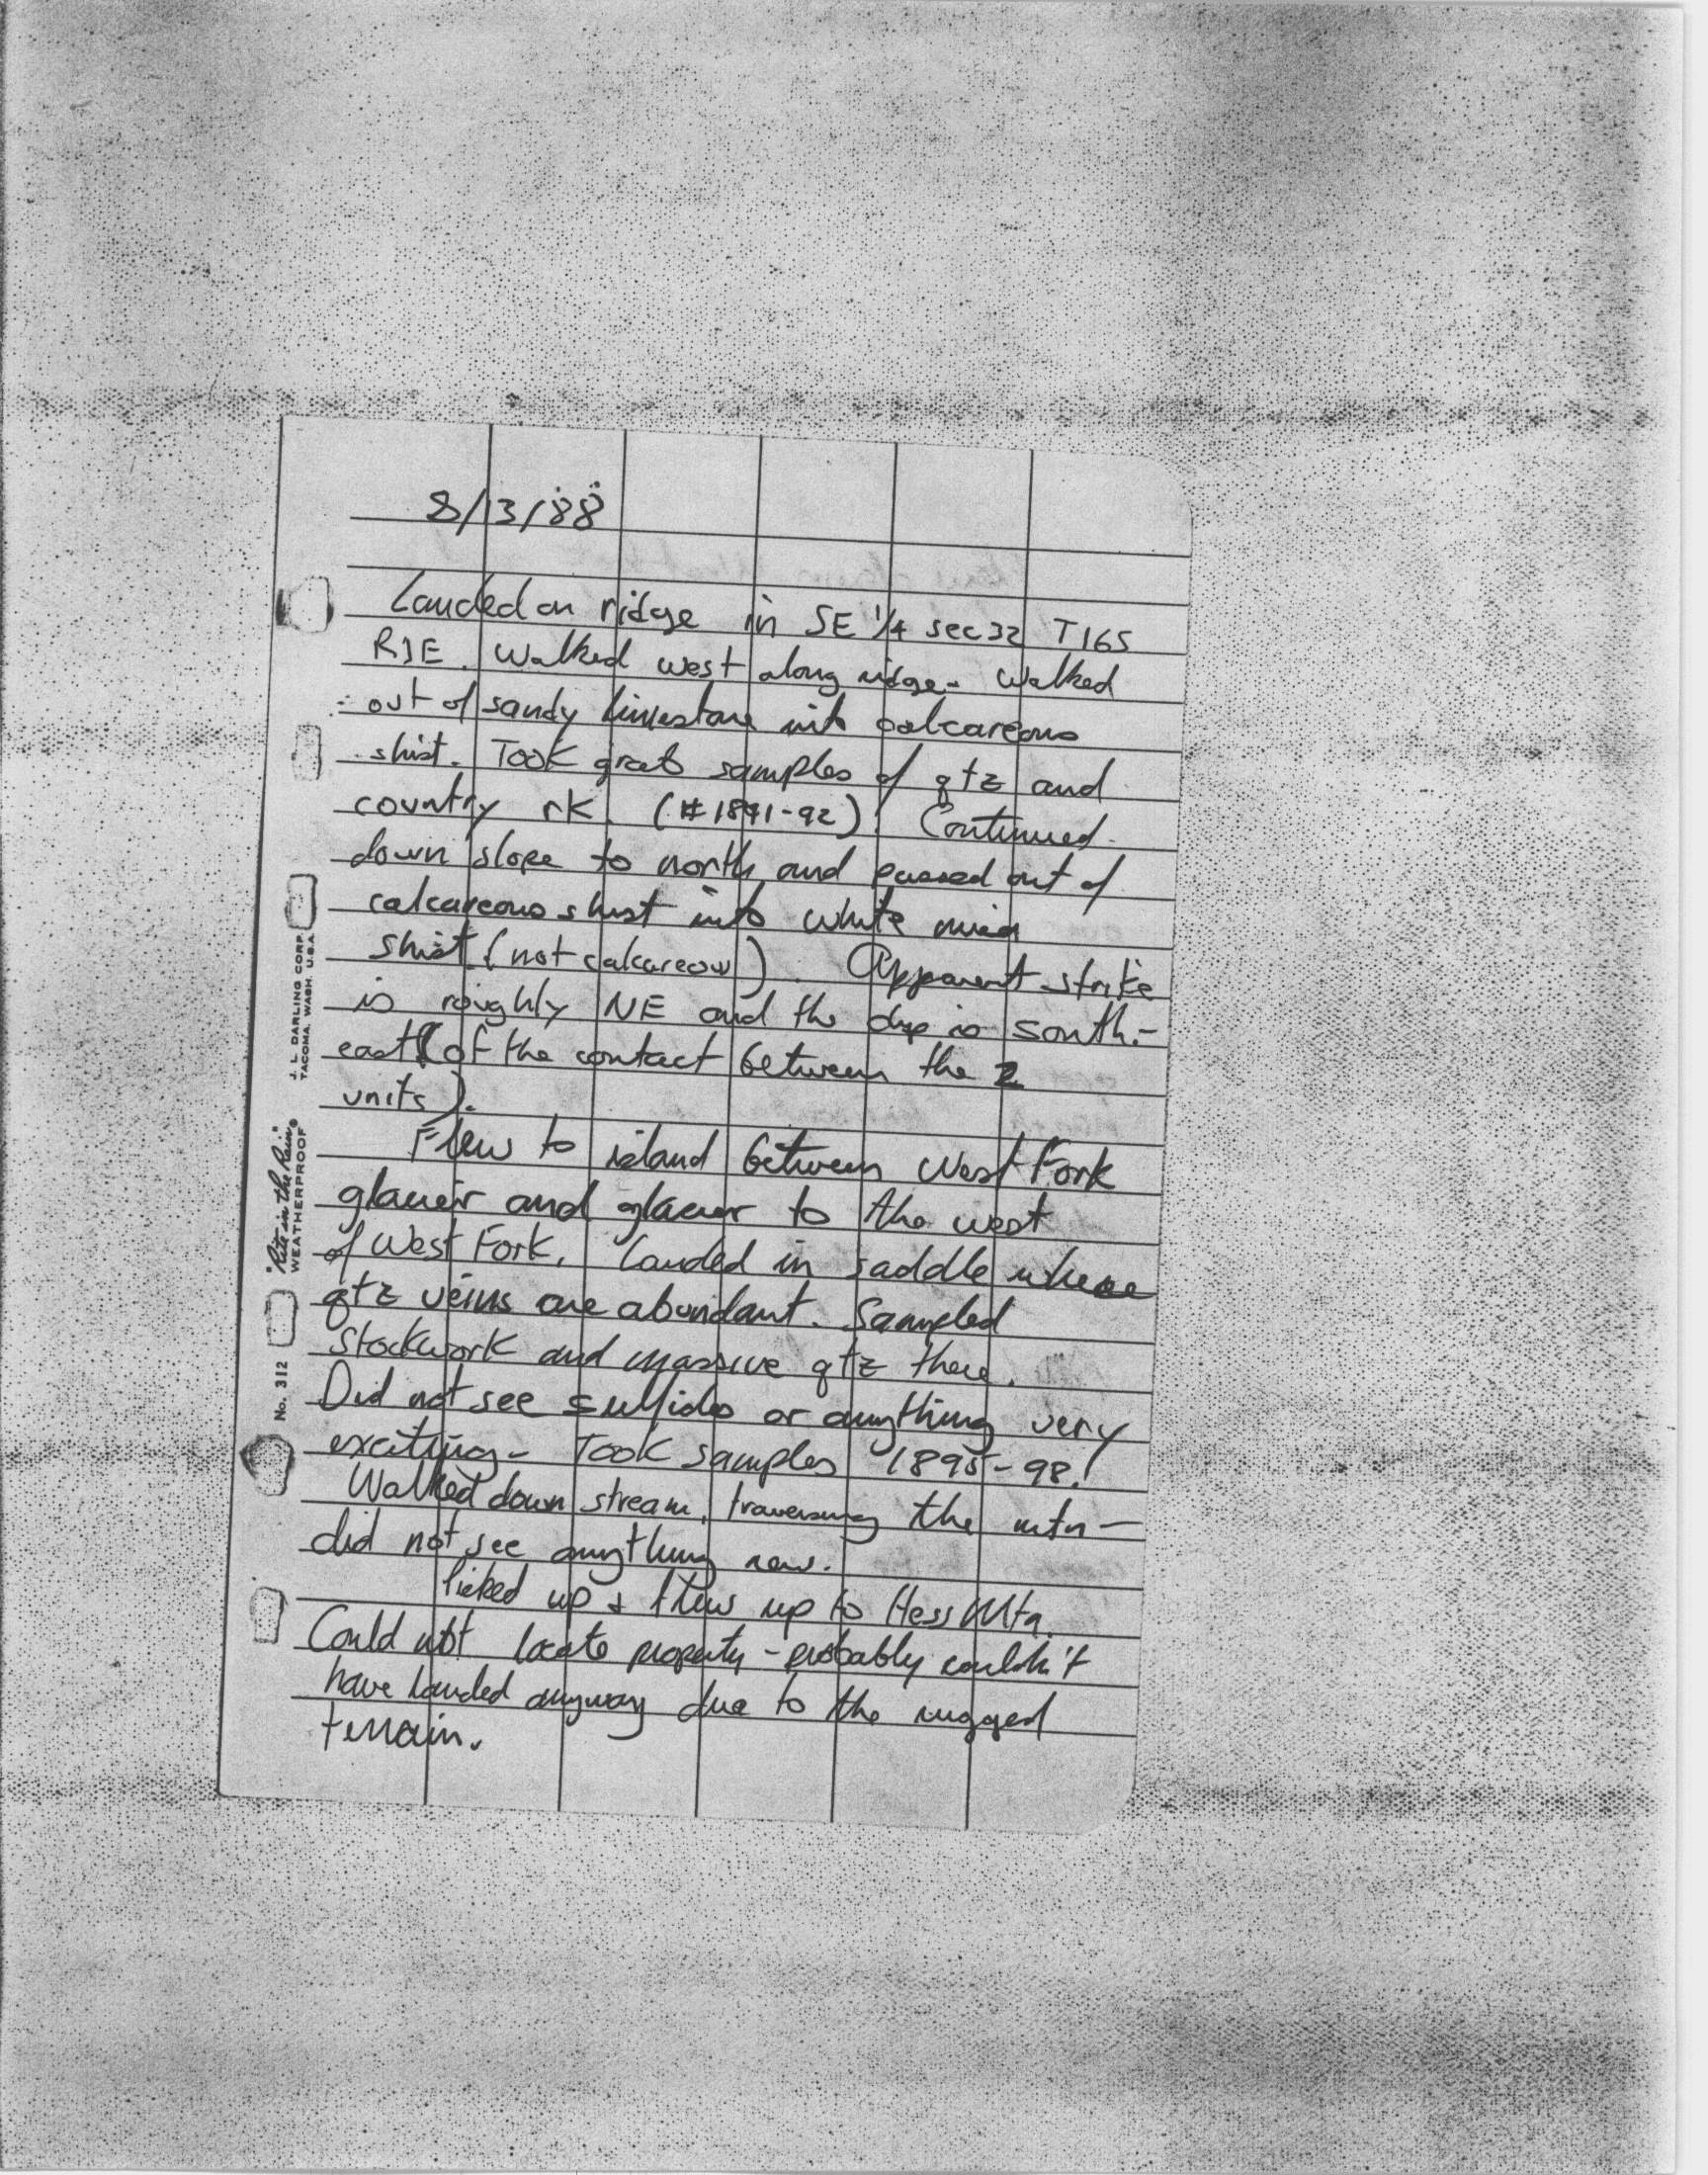 8/3/88
Landed on ridge in SE 1/4 sec 32 T16S
R1E. Walked west along ridge - Walked
out of sandy limestone into calcareous
shist. Took grab samples of qtz and
country rk. (#1891-92). Continued
down slope to north and passed out of
calcareous shist into white mica
shist (not calcareous). Apparent strike
is roughly NE and the dip is south-
east (of the contact between the 2
units).
Flew to island between West Fork
glacier and glacier to the west
of West Fork. Landed in saddle where
qtz veins are abundant. Sampled
stockwork and massive qtz there.
Did not see sulfides or anything very
exciting - Took samples 1895-98.
Walked down stream, traversing the mtn -
did not see anything new.
Picked up & flew up to Hess Mtn.
Could not locate property - probably couldn't
have landed anyway due to the rugged
terrain.
J. L. DARLING CORP.
TACOMA, WASH. U.S.A.
"Rite in the Rain"
WEATHERPROOF
No. 312